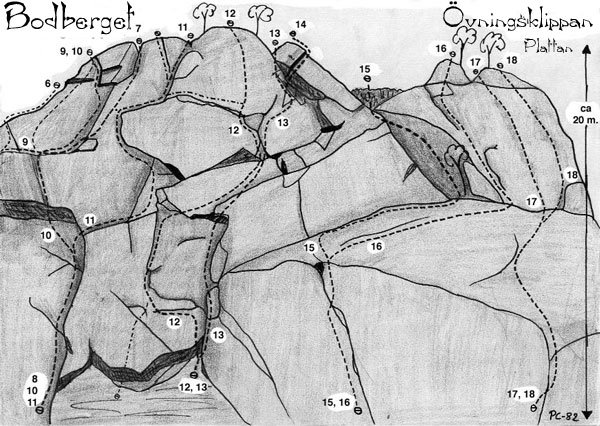 Bodberget
Övningsklippan
Plattan
7
11
12
13
14
9, 10
6
15
16
17
18
ca
20 m.
12
13
9
18
17
11
10
15
16
12
13
8
10
11
12, 13-
15, 16
17, 18
PC-82